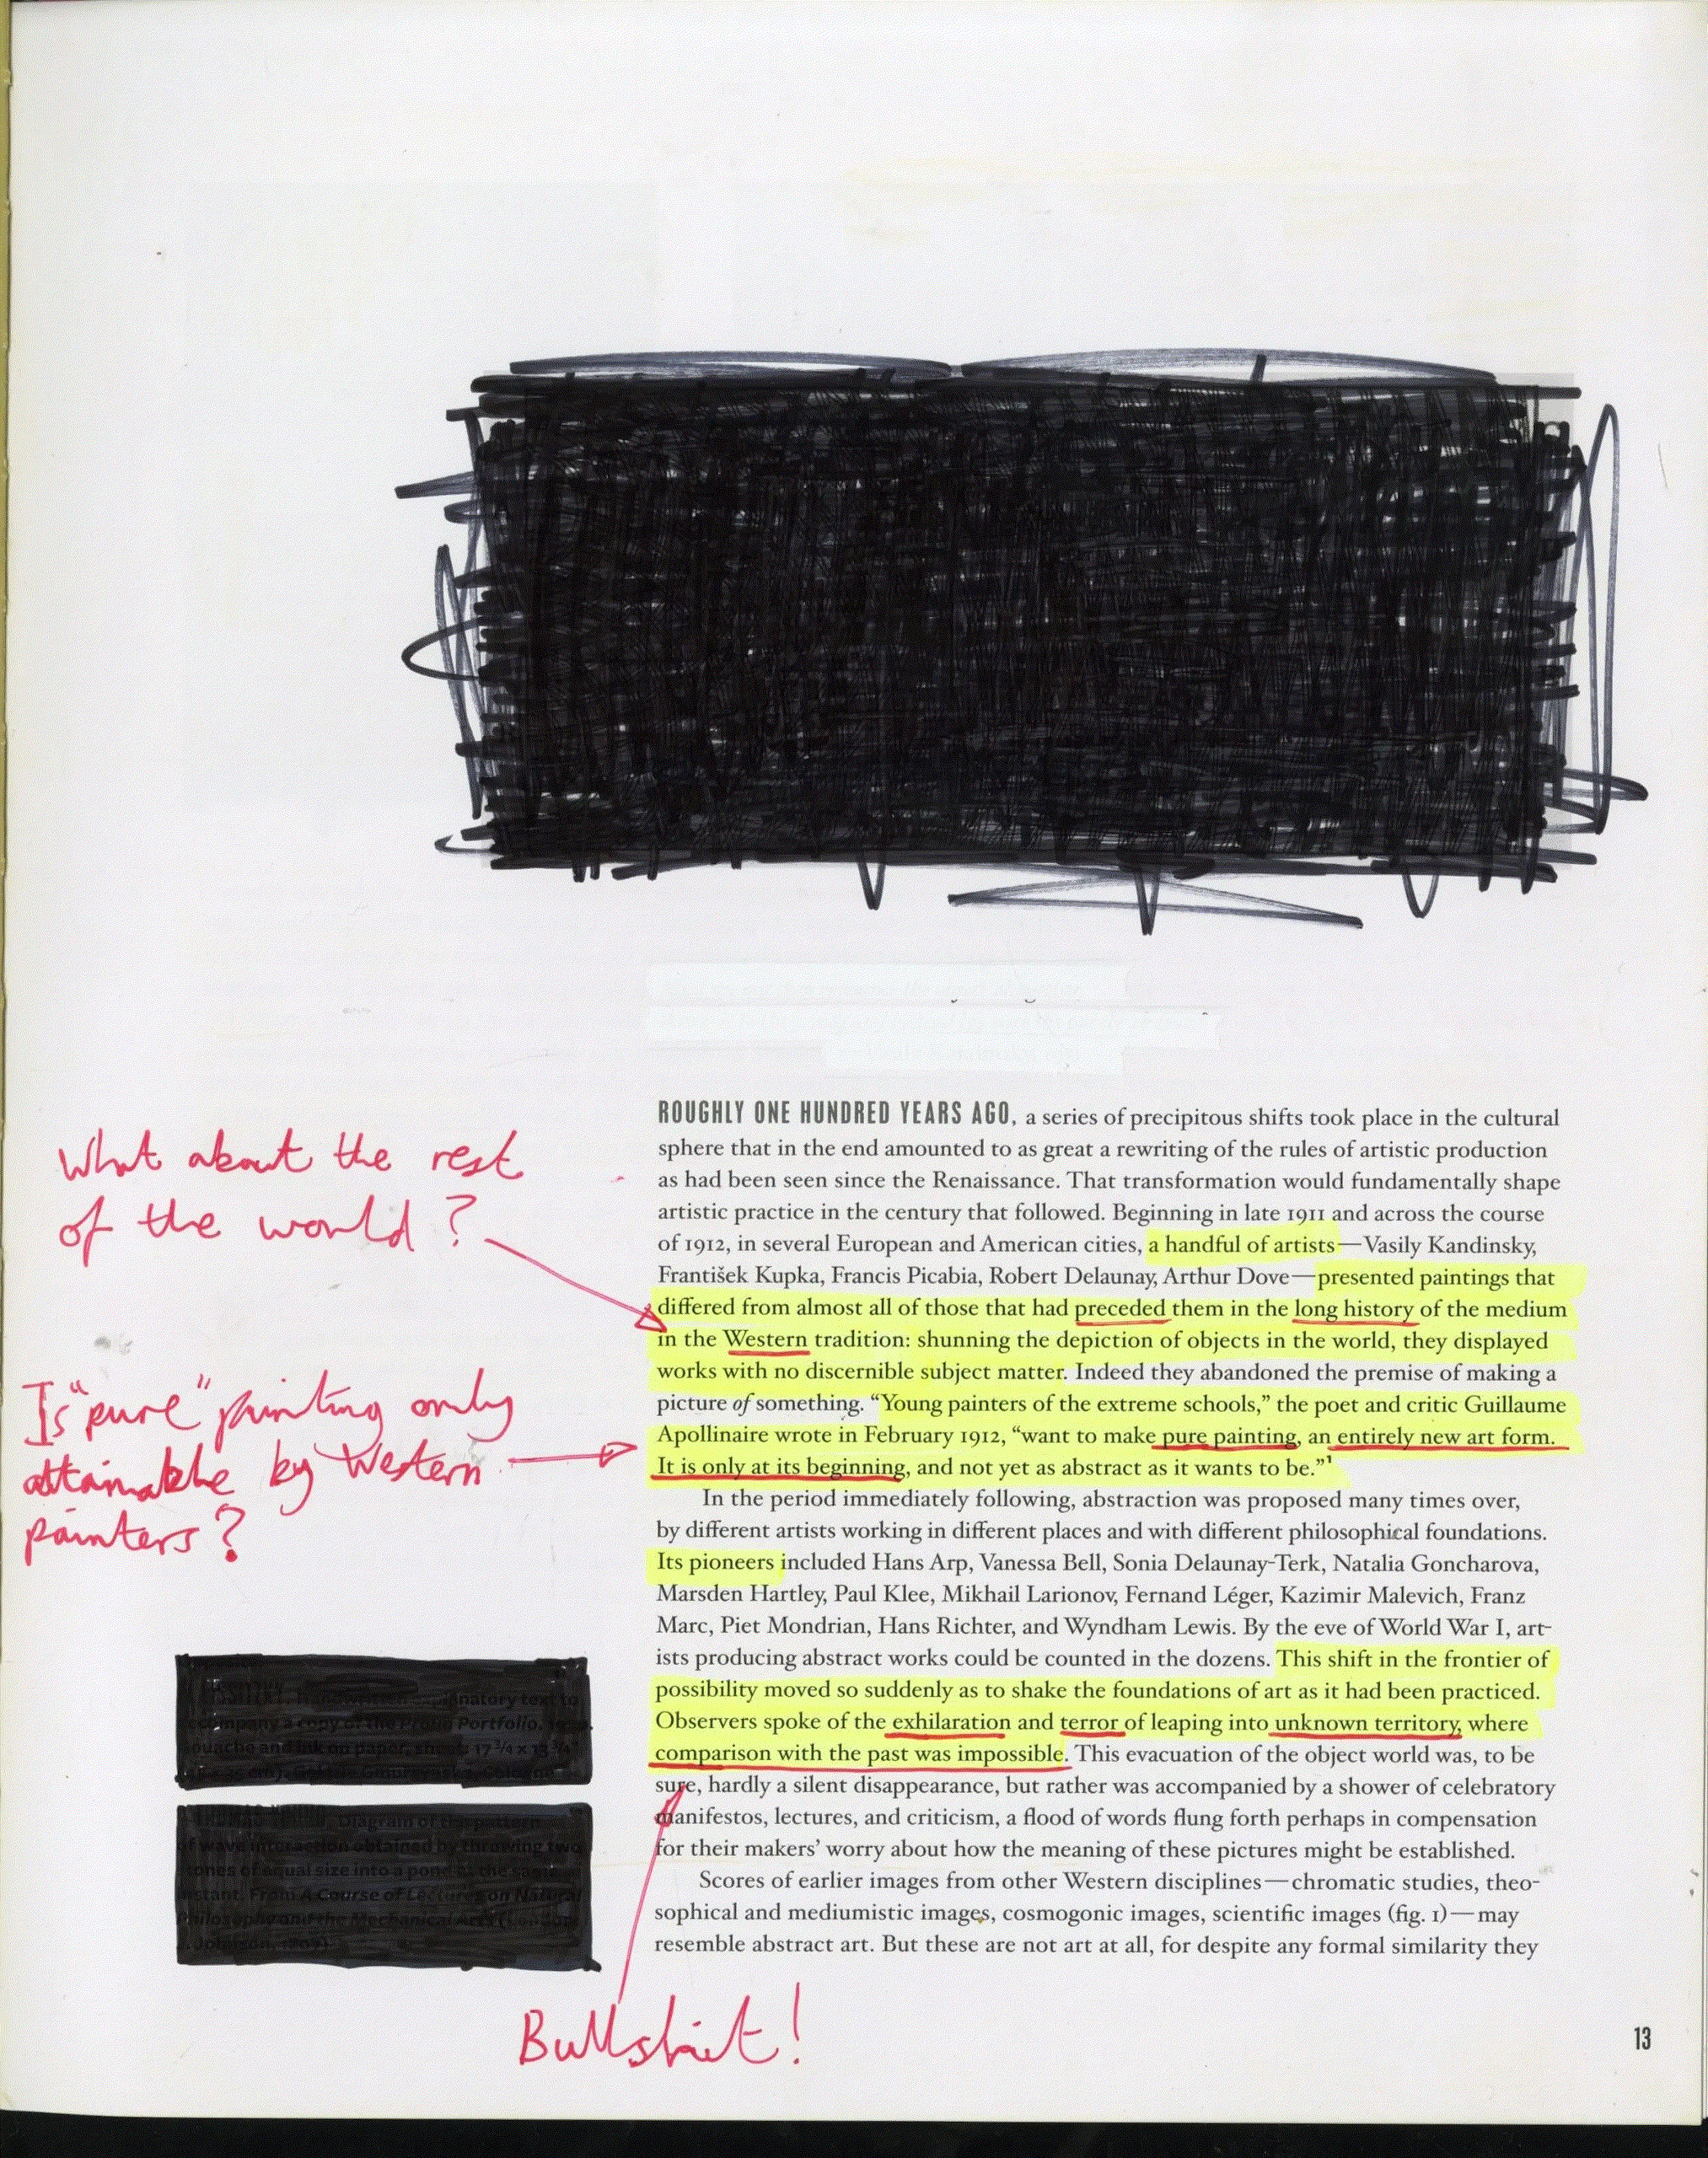 ROUGHLY ONE HUNDRED YEARS AGO, a series of precipitous shifts took place in the cultural
sphere that in the end amounted to as great a rewriting of the rules of artistic production
as had been seen since the Renaissance. That transformation would fundamentally shape
artistic practice in the century that followed. Beginning in late 1911 and across the course
of 1912, in several European and American cities, a handful of artists—Vasily Kandinsky,
František Kupka, Francis Picabia, Robert Delaunay, Arthur Dove—presented paintings that
differed from almost all of those that had preceded them in the long history of the medium
in the Western tradition: shunning the depiction of objects in the world, they displayed
works with no discernible subject matter. Indeed they abandoned the premise of making a
picture of something. “Young painters of the extreme schools,” the poet and critic Guillaume
Apollinaire wrote in February 1912, “want to make pure painting, an entirely new art form.
It is only at its beginning, and not yet as abstract as it wants to be.”1
In the period immediately following, abstraction was proposed many times over,
by different artists working in different places and with different philosophical foundations.
Its pioneers included Hans Arp, Vanessa Bell, Sonia Delaunay-Terk, Natalia Goncharova,
Marsden Hartley, Paul Klee, Mikhail Larionov, Fernand Léger, Kazimir Malevich, Franz
Marc, Piet Mondrian, Hans Richter, and Wyndham Lewis. By the eve of World War I, art-
ists producing abstract works could be counted in the dozens. This shift in the frontier of
possibility moved so suddenly as to shake the foundations of art as it had been practiced.
Observers spoke of the exhilaration and terror of leaping into unknown territory, where
comparison with the past was impossible. This evacuation of the object world was, to be
sure, hardly a silent disappearance, but rather was accompanied by a shower of celebratory
manifestos, lectures, and criticism, a flood of words flung forth perhaps in compensation
for their makers’ worry about how the meaning of these pictures might be established.
Scores of earlier images from other Western disciplines—chromatic studies, theo-
sophical and mediumistic images, cosmogonic images, scientific images (fig. 1)—may
resemble abstract art. But these are not art at all, for despite any formal similarity they
What about the rest
of the world?
Is "pure" painting only
attainable by Western
painters?
natory text to
company a copy of the Proun Portfolio.
ouache and ink on paper, sheet: 17 3/4 x 13 3/4
Diagram of the pattern
of wave interaction obtained by throwing two
stones of equal size into a pond at the same
instant. From A Course of Lectures on Natural
Philosophy and the Mechanical Arts (London:
J. Johnson, 1807)
Bullshit!
13